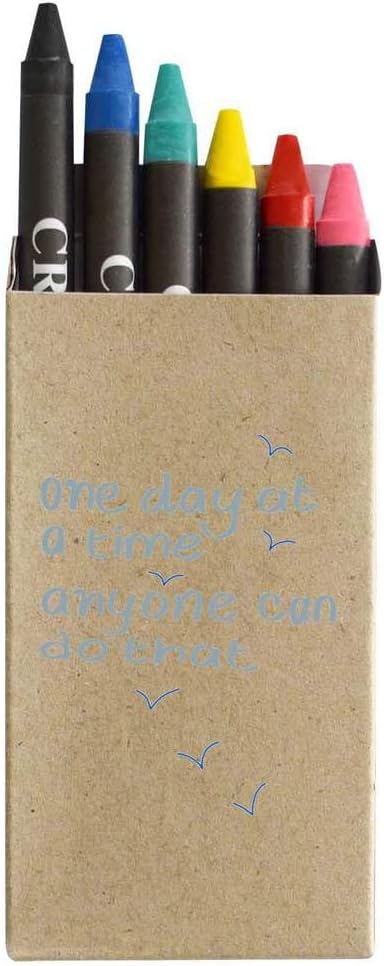 CR
C
C
one day at
a time
anyone can
do that